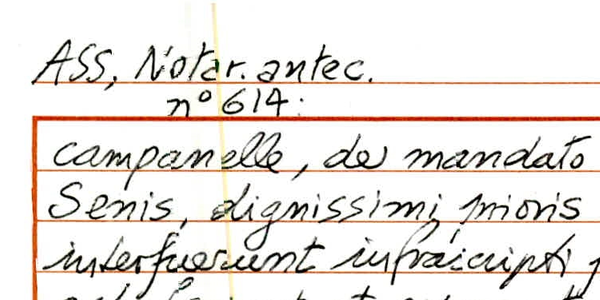 ASS, Notar. antec.
n° 614:
campanelle, de mandato
Senis, dignissimi prioris
interfuerunt infrascripti